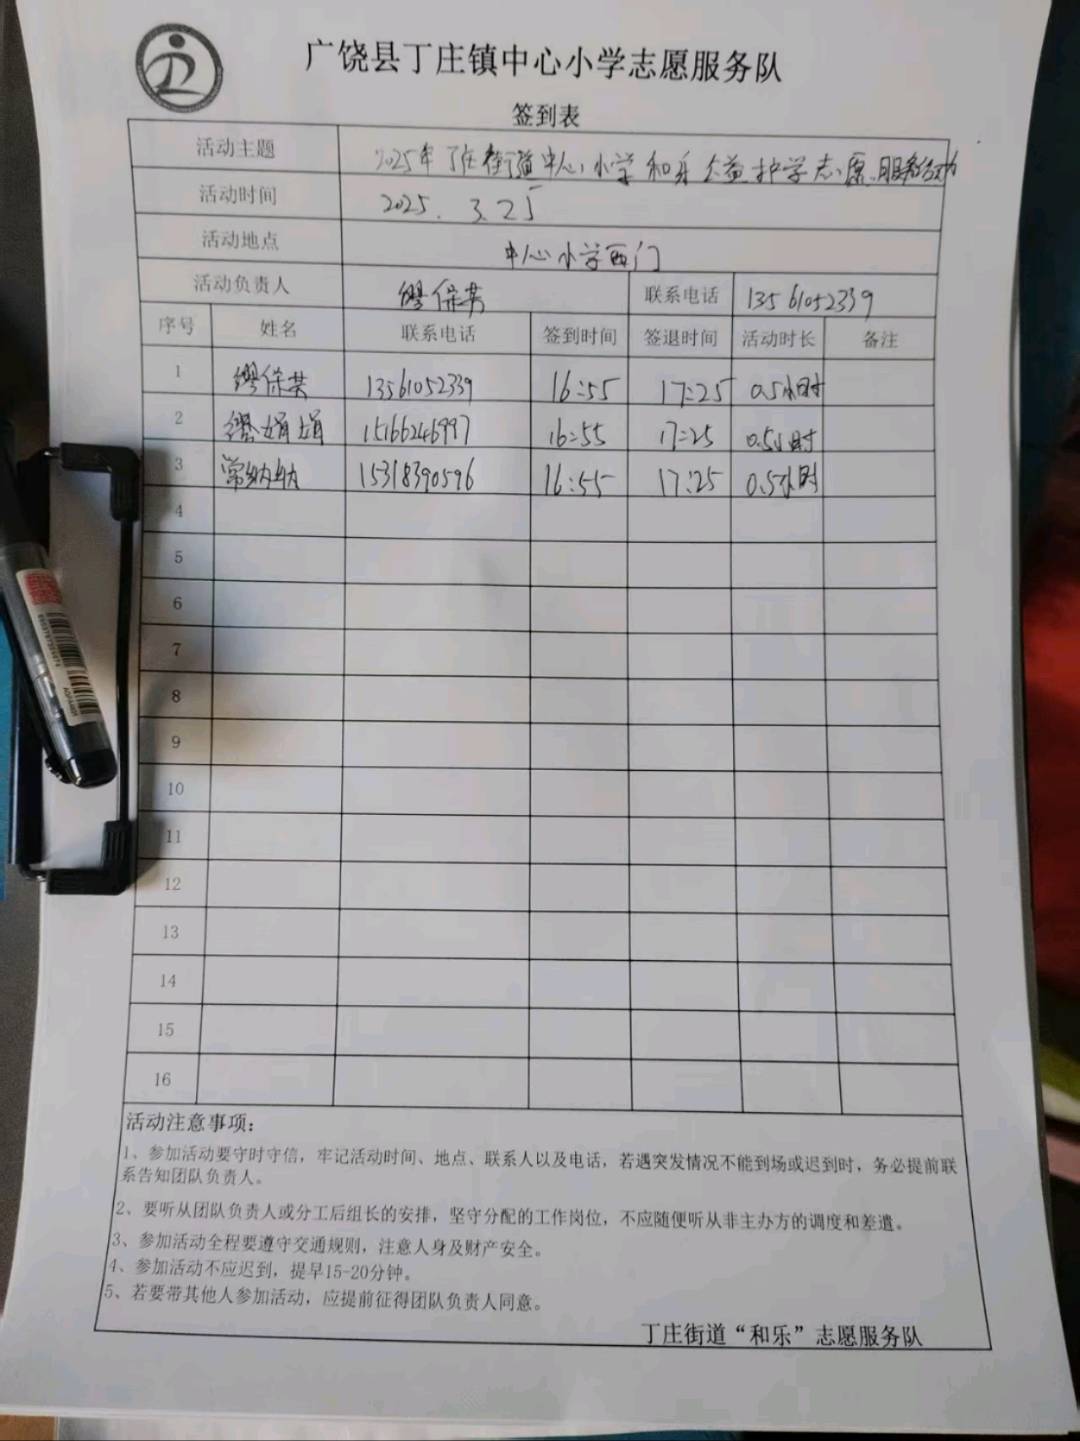 广饶县丁庄镇中心小学志愿服务队
签到表
活动主题 2025年丁庄街道中心小学和乐公益护学志愿服务活动
活动时间 2025.3.25
活动地点 中心小学西门
活动负责人 缪保芸 联系电话 13561052339
序号 姓名 联系电话 签到时间 签退时间 活动时长 备注
1 缪保芸 13561052339 16:55 17:25 0.5小时
2 缪娟娟 15166246997 16:55 17:25 0.5小时
3 常纳纳 15318390596 16:55 17:25 0.5小时
4
5
6
7
8
9
10
11
12
13
14
15
16
活动注意事项：
1、参加活动要守时守信，牢记活动时间、地点、联系人以及电话，若遇突发情况不能到场或迟到时，务必提前联
系告知团队负责人。
2、要听从团队负责人或分工后组长的安排，坚守分配的工作岗位，不应随便听从非主办方的调度和差遣。
3、参加活动全程要遵守交通规则，注意人身及财产安全。
4、参加活动不应迟到，提早15-20分钟。
5、若要带其他人参加活动，应提前征得团队负责人同意。
丁庄街道“和乐”志愿服务队